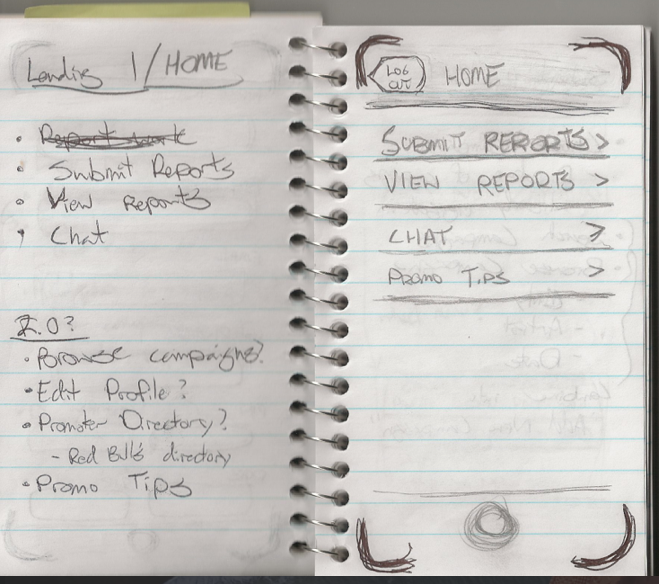 Landing 1/HOME
• Submit Reports
• View Reports
• Chat
2.0?
• Browse campaigns?
• Edit Profile?
• Promoter Directory?
- Red Bull's directory
• Promo Tips
LOG OUT
HOME
SUBMIT REPORTS >
VIEW REPORTS >
CHAT >
PROMO TIPS >